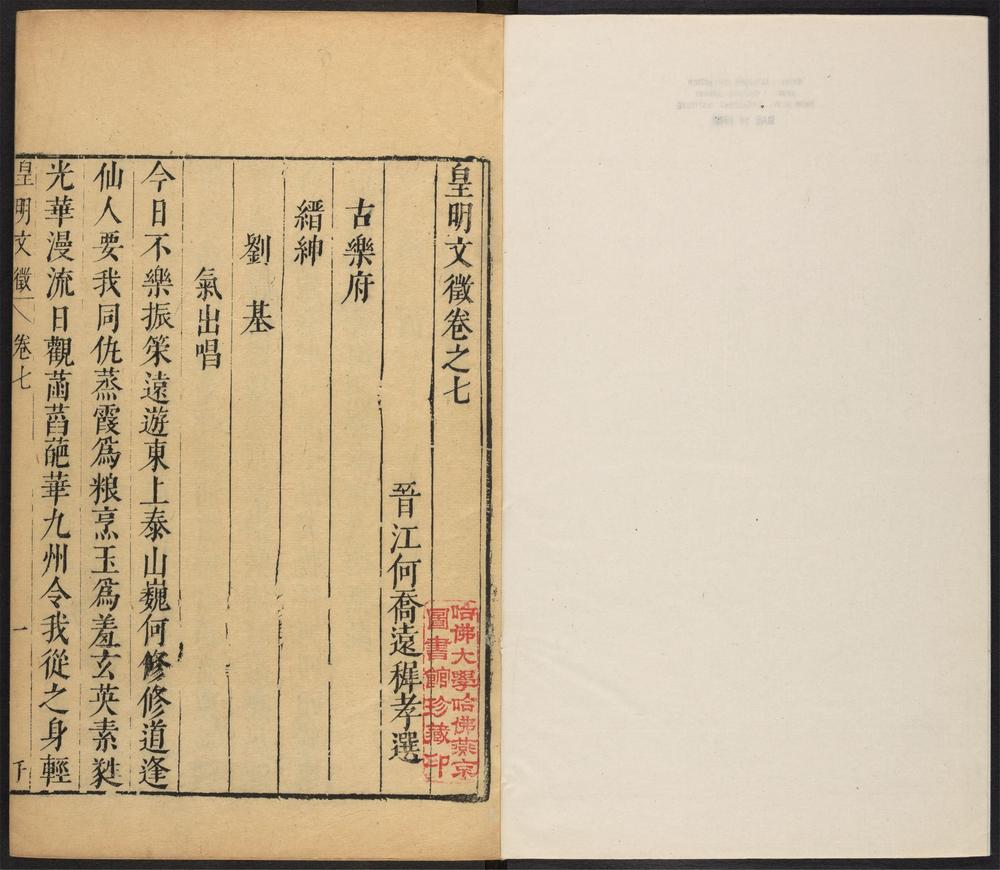 皇明文徵卷之七
晉江何喬遠穉孝選
古樂府
縉紳
劉基
氣出唱
今日不樂振策遠遊東上泰山巍何修修道逢
仙人要我同仇蒸霞爲粮烹玉爲羞玄英素㲯
光華漫流日觀菡萏葩華九州令我從之身輕
皇明文徵 卷七 一
哈佛大學哈佛燕京
圖書館珍藏印